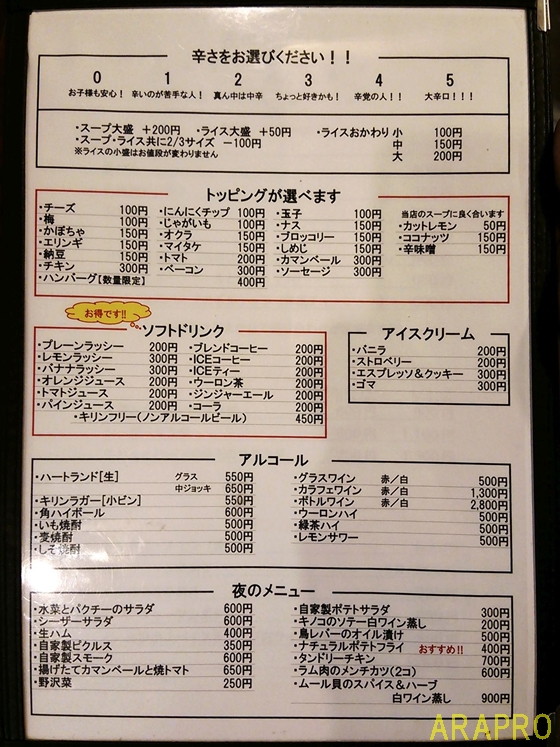 辛さをお選びください！！
0 1 2 3 4 5
お子様も安心！ 辛いのが苦手な人！ 真ん中は中辛 ちょっと好きかも！ 辛党の人！！ 大辛口！！！
・スープ大盛 ＋200円 ・ライス大盛 ＋50円 ・ライスおかわり 小 100円
・スープ・ライス共に2/3サイズ －100円 中 150円
※ライスの小盛はお値段が変わりません 大 200円
トッピングが選べます
・チーズ 100円 ・にんにくチップ 100円 ・玉子 100円 当店のスープに良く合います
・梅 100円 ・じゃがいも 100円 ・ナス 150円 ・カットレモン 50円
・かぼちゃ 150円 ・オクラ 150円 ・ブロッコリー 150円 ・ココナッツ 150円
・エリンギ 150円 ・マイタケ 150円 ・しめじ 150円 ・辛味噌 150円
・納豆 150円 ・トマト 200円 ・カマンベール 300円
・チキン 300円 ・ベーコン 300円 ・ソーセージ 300円
・ハンバーグ【数量限定】 400円
お得です!!
ソフトドリンク
・プレーンラッシー 200円 ・ブレンドコーヒー 200円
・レモンラッシー 300円 ・ICEコーヒー 200円
・バナナラッシー 300円 ・ICEティー 200円
・オレンジジュース 200円 ・ウーロン茶 200円
・トマトジュース 200円 ・ジンジャーエール 200円
・パインジュース 200円 ・コーラ 200円
・キリンフリー(ノンアルコールビール) 450円
アイスクリーム
・バニラ 200円
・ストロベリー 200円
・エスプレッソ＆クッキー 300円
・ゴマ 300円
アルコール
・ハートランド[生] グラス 550円 ・グラスワイン 赤／白 500円
中ジョッキ 650円 ・カラフェワイン 赤／白 1,300円
・キリンラガー[小ビン] 550円 ・ボトルワイン 赤／白 2,800円
・角ハイボール 600円 ・ウーロンハイ 500円
・いも焼酎 500円 ・緑茶ハイ 500円
・麦焼酎 500円 ・レモンサワー 500円
・しそ焼酎 500円
夜のメニュー
・水菜とパクチーのサラダ 600円 ・自家製ポテトサラダ 300円
・シーザーサラダ 600円 ・キノコのソテー白ワイン蒸し 200円
・生ハム 400円 ・鳥レバーのオイル漬け 500円
・自家製ピクルス 350円 ・ナチュラルポテトフライ おすすめ!! 400円
・自家製スモーク 600円 ・タンドリーチキン 700円
・揚げたてカマンベールと焼トマト 650円 ・ラム肉のメンチカツ(2コ) 600円
・野沢菜 250円 ・ムール貝のスパイス＆ハーブ
白ワイン蒸し 900円
ARAPRO